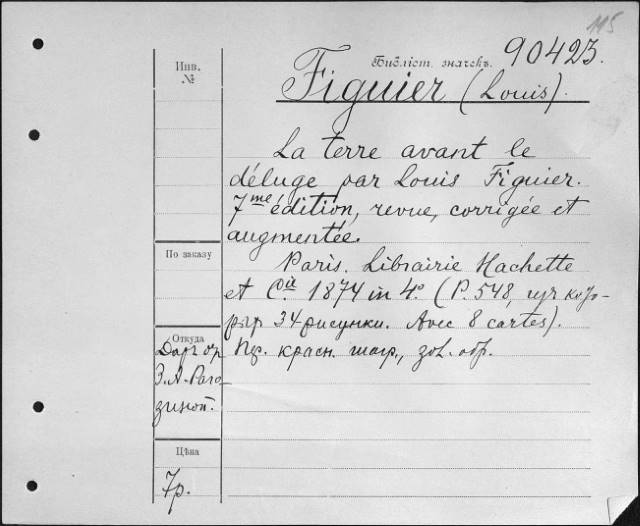 115
Библіот. значекъ. 90423.
Инв.
№
Figuier (Louis).
La terre avant le
déluge par Louis Figuier.
7me édition, revue, corrigée et
augmentée.
По заказу
Paris. Librairie Hachette
et Cie 1874 in 4º. (P. 548,
34 рисунки. Avec 8 cartes).
Откуда
Даръ
З. А. Раго-
зиной.
красн. шагр., зол. обр.
Цѣна
7р.